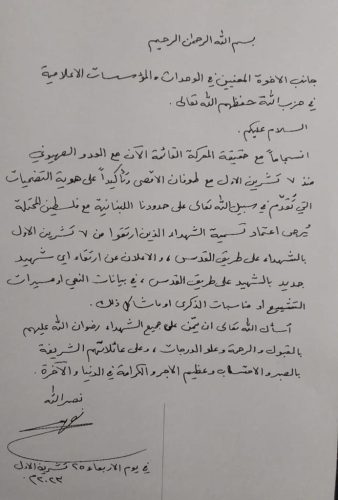 بسم الله الرحمن الرحيم
جانب الاخوة المعنيين في الوحدات والمؤسسات الاعلامية
في حزب الله حفظهم الله تعالى.
السلام عليكم.
انسجاماً مع حقيقة المعركة القائمة الآن مع العدو الصهيوني
منذ ٧ تشرين الاول مع طوفان الاقصى وتأكيداً على هوية التضحيات
التي تُقدّم في سبيل الله تعالى على حدودنا اللبنانية مع فلسطين المحتلة
يُرجى اعتماد تسمية الشهداء الذين ارتقوا من ٧ تشرين الاول
بالشهداء على طريق القدس، والاعلان عن ارتقاء اي شهيد
جديد بالشهيد على طريق القدس، في بيانات النعي او مسيرات
التشييع او مناسبات الذكرى او ما شاكل ذلك.
أسأل الله تعالى ان يمنّ على جميع الشهداء رضوان الله عليهم
بالقبول والرحمة وعلو الدرجات، وعلى عائلاتهم الشريفة
بالصبر والاحتساب وعظيم الاجر والكرامة في الدنيا والآخرة.
نصر الله
في يوم الاربعاء ٢٥ تشرين الاول
٢٠٢٣م